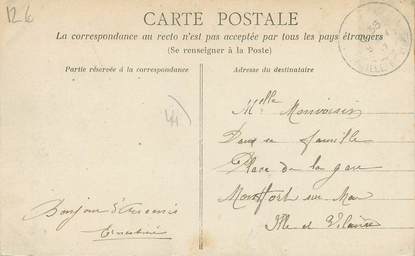 126
CARTE POSTALE
La correspondance au recto n'est pas acceptée par tous les pays étrangers
(Se renseigner à la Poste)
Partie réservée à la correspondance
Adresse du destinataire
44
Melle Monvoisin
Dans sa famille
Place de la gare
Montfort sur Meu
Ille et Vilaine
Bonjour d'Ancenis
Ernestine